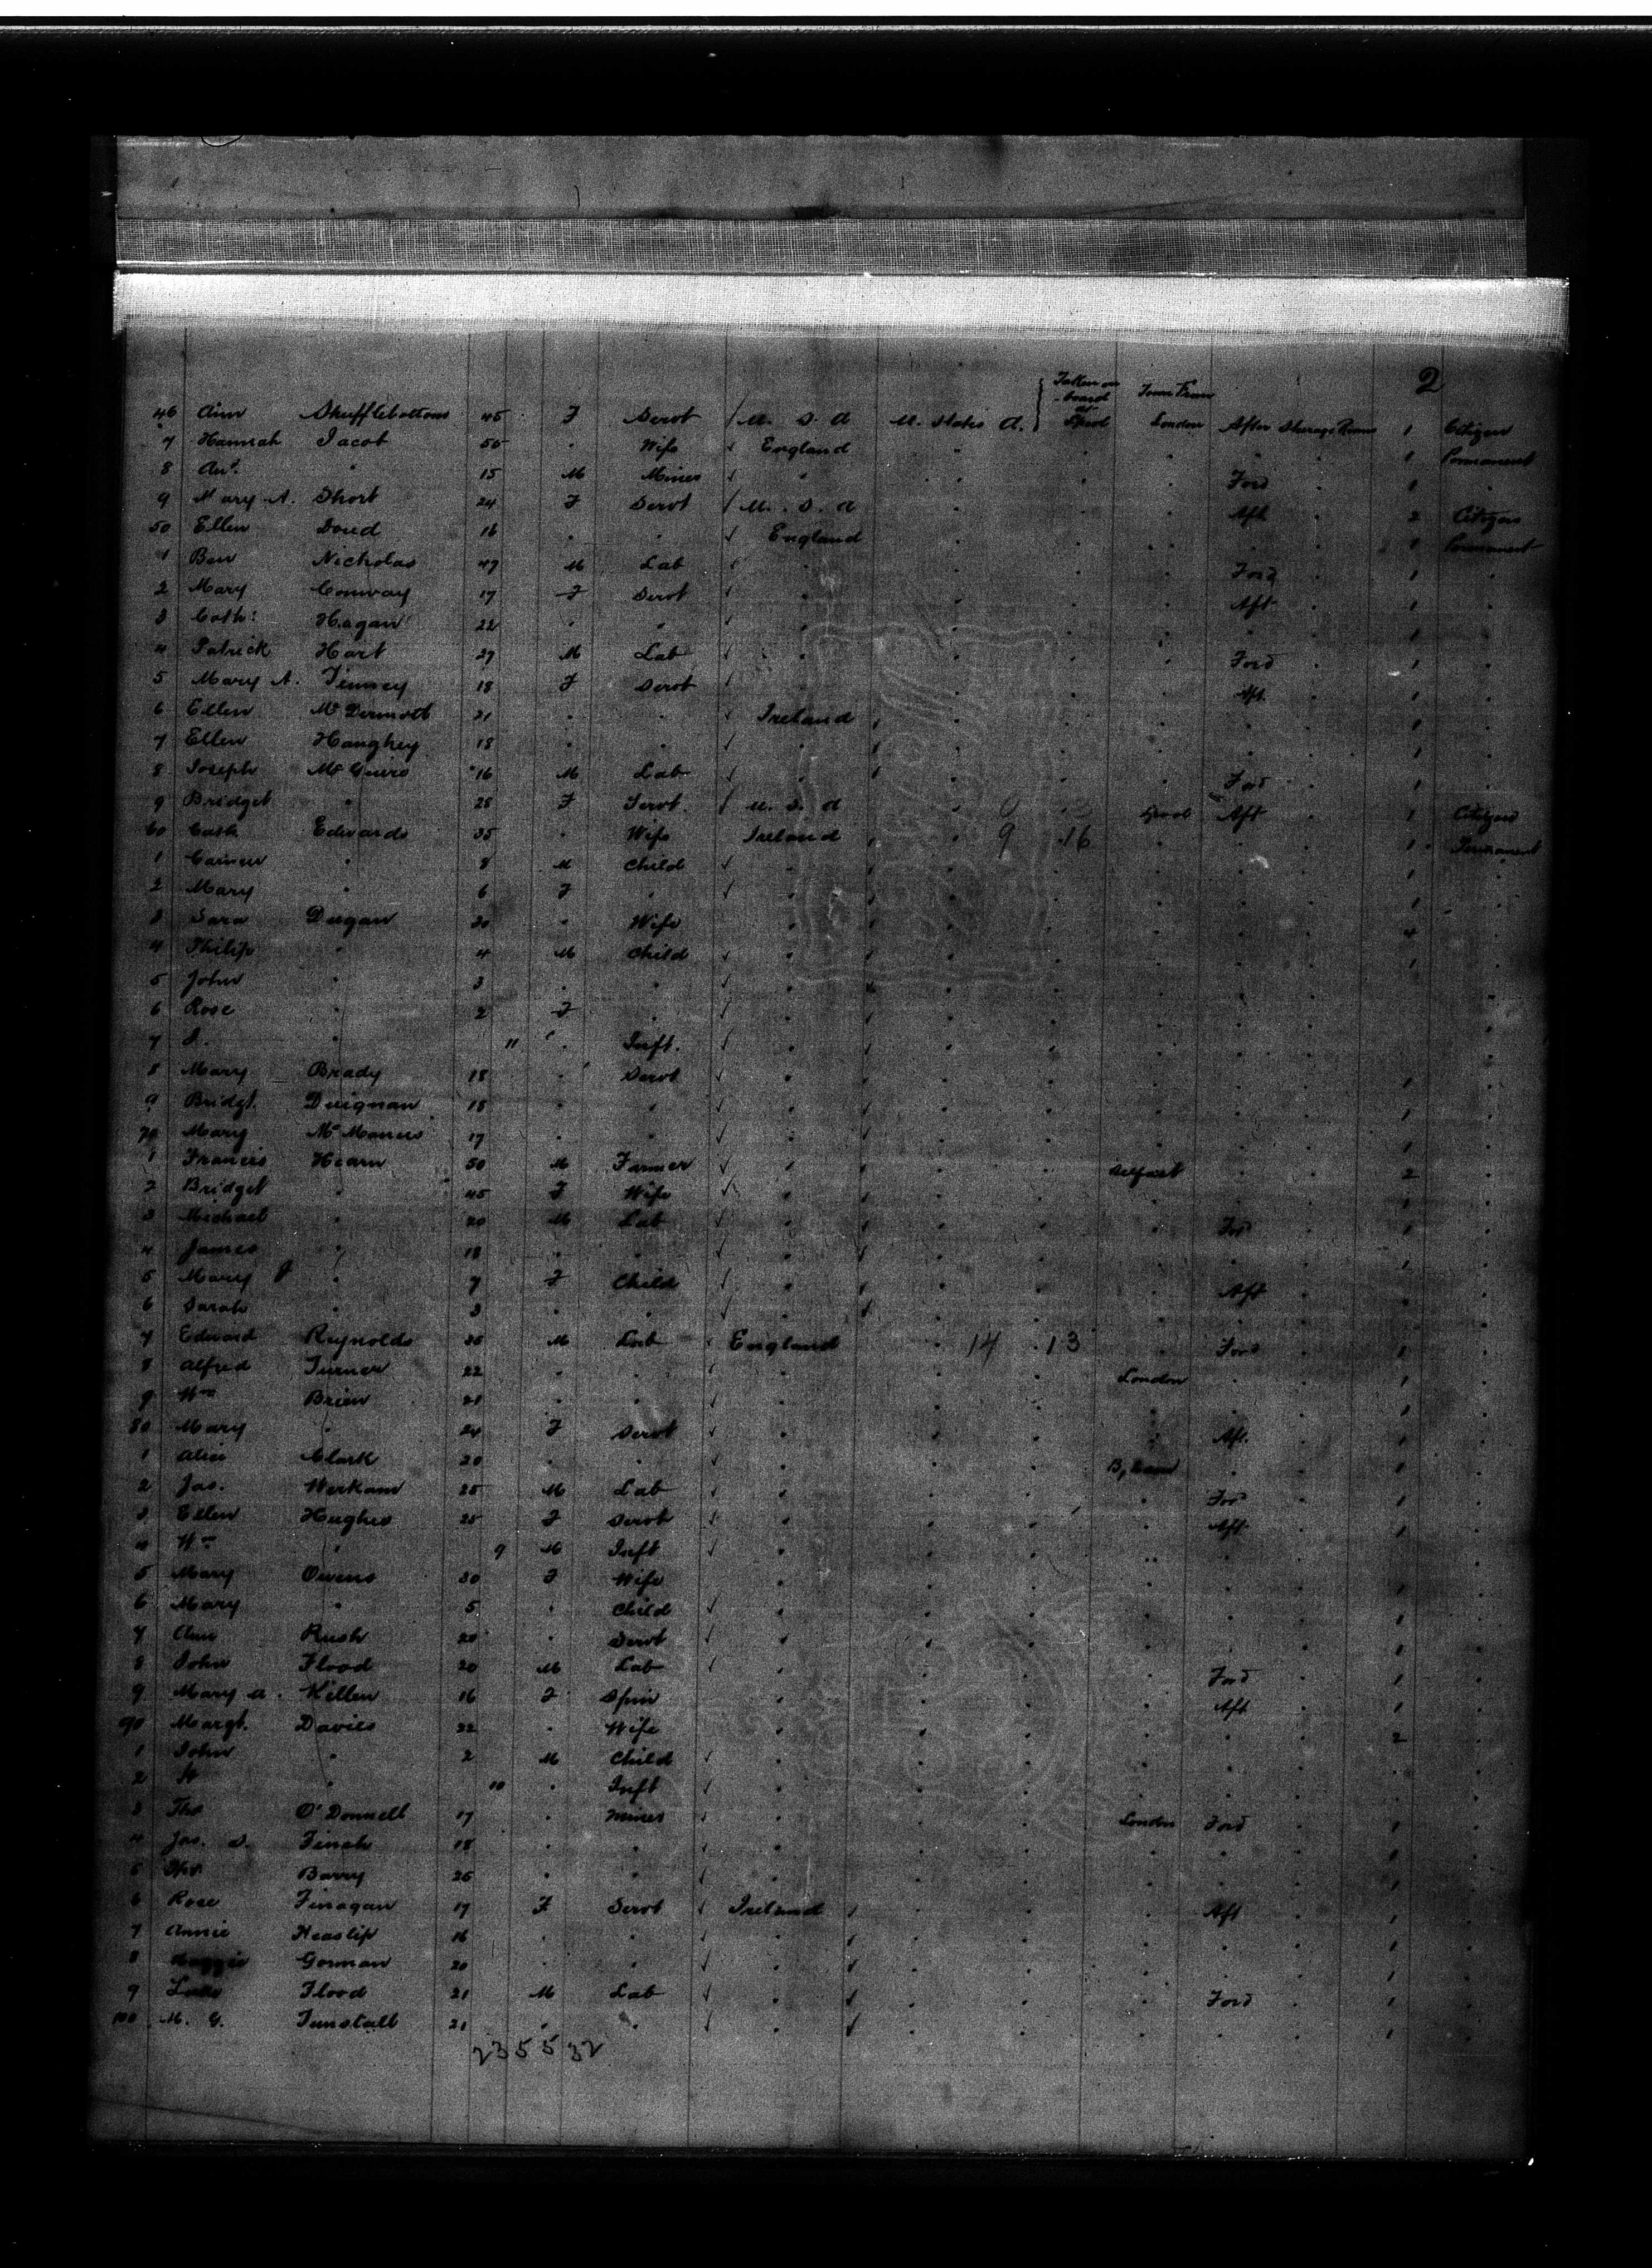 2
Taken on
board
at
Town From
46 Ann Shufflebottom 45 F Servt / U. S. A U. States A. Lpool London After Sterage Rooms 1 Citizen
7 Hannah Jacob 55 " Wife ✓ England " " " 1 Permanent
8 " 15 M Miner ✓ " " Ford " 1 "
9 Mary A. Short 24 F Servt / U. S. A " Aft " 2 Citizen
50 Ellen Doud 16 " " ✓ England " " " 1 Permanent
1 Ben Nicholas 47 M Lab ✓ " " Ford " 1 "
2 Mary Conway 17 F Servt ✓ " " Aft " 1 "
3 Cath: Hagan 22 " " ✓ " " " " 1 "
4 Patrick Hart 27 M Lab ✓ " " Ford " 1 "
5 Mary A. Finney 18 F Servt ✓ " " Aft " 1 "
6 Ellen McDermott 21 " " ✓ Ireland " " " 1 "
7 Ellen Haughey 18 " " ✓ " " " " 1 "
8 Joseph McGuire 16 M Lab ✓ " " Ford " 1 "
9 Bridget " 28 F Servt. / U. S. A " Lpool Aft " 1 Citizen
60 Cath Edwards 35 " Wife Ireland " 9 16 " " 1 Permanent
1 " 8 M Child ✓ " " " " 1 "
2 Mary " 6 F " ✓ " " " " 1 "
3 Sara Dugan 30 " Wife " " " " 4 "
4 Philip " 4 M Child ✓ " " " " 1 "
5 John " 3 " " " " " "
6 Rose " 2 F " ✓ " " " "
7 " 11 " Inft. ✓ " " " "
8 Mary Brady 18 " Servt ✓ " " " " 1 "
9 Bridgt. Duignan 18 " " ✓ " " " " 1 "
70 Mary McManus 17 " " ✓ " " " " 1 "
1 Francis Hearn 50 M Farmer ✓ " " Belfast " " 2 "
2 Bridget " 45 F Wife ✓ " " " " 1 "
3 Michael " 20 M Lab ✓ " " Ford " 1 "
4 James " 18 " " ✓ " " " " 1 "
5 Mary " 7 F Child ✓ " " Aft " "
6 Sarah " 3 " " ✓ " " " " "
7 Edward Reynolds 36 M Lab ✓ England " 14 13 Ford " 1 "
8 Alfred Turner 22 " " ✓ " " London " " 1 "
9 Wm Brien 21 " " ✓ " " " " 1 "
80 Mary " 24 F Servt ✓ " " Aft. " 1 "
1 Alice Clark 20 " " ✓ " " " " 1 "
2 Jas. Werkam 25 M Lab ✓ " " Ford " 1 "
3 Ellen Hughes 25 F Servt ✓ " " Aft " 1 "
4 Wm " 9 M Inft ✓ " " " " "
5 Mary Owens 30 F Wife ✓ " " " " 1 "
6 Mary " 5 " Child ✓ " " " " 1 "
7 Ann Rush 20 " Servt ✓ " " " " 1 "
8 John Flood 20 M Lab ✓ " " Ford " 1 "
9 Mary A. Killen 16 F Spin " " Aft " 1 "
90 Margt. Davies 32 " Wife " " " " 2 "
1 John " 2 M Child ✓ " " " " "
2 " 10 " Inft ✓ " " " " "
3 Thos O'Donnell 17 " Miner ✓ " " London Ford " 1 "
4 Jas. S. Finch 18 " " ✓ " " " " 1 "
5 Barry 26 " " ✓ " " " " 1 "
6 Rose Finagan 17 F Servt ✓ Ireland " " Aft " 1 "
7 Annie Heaslip 16 " " " " " " 1 "
8 Gorman 20 " " ✓ " " " " 1 "
9 Flood 21 M Lab ✓ " " Ford " 1 "
100 M. G. Tunstall 21 " " ✓ " " " " 1 "
235532